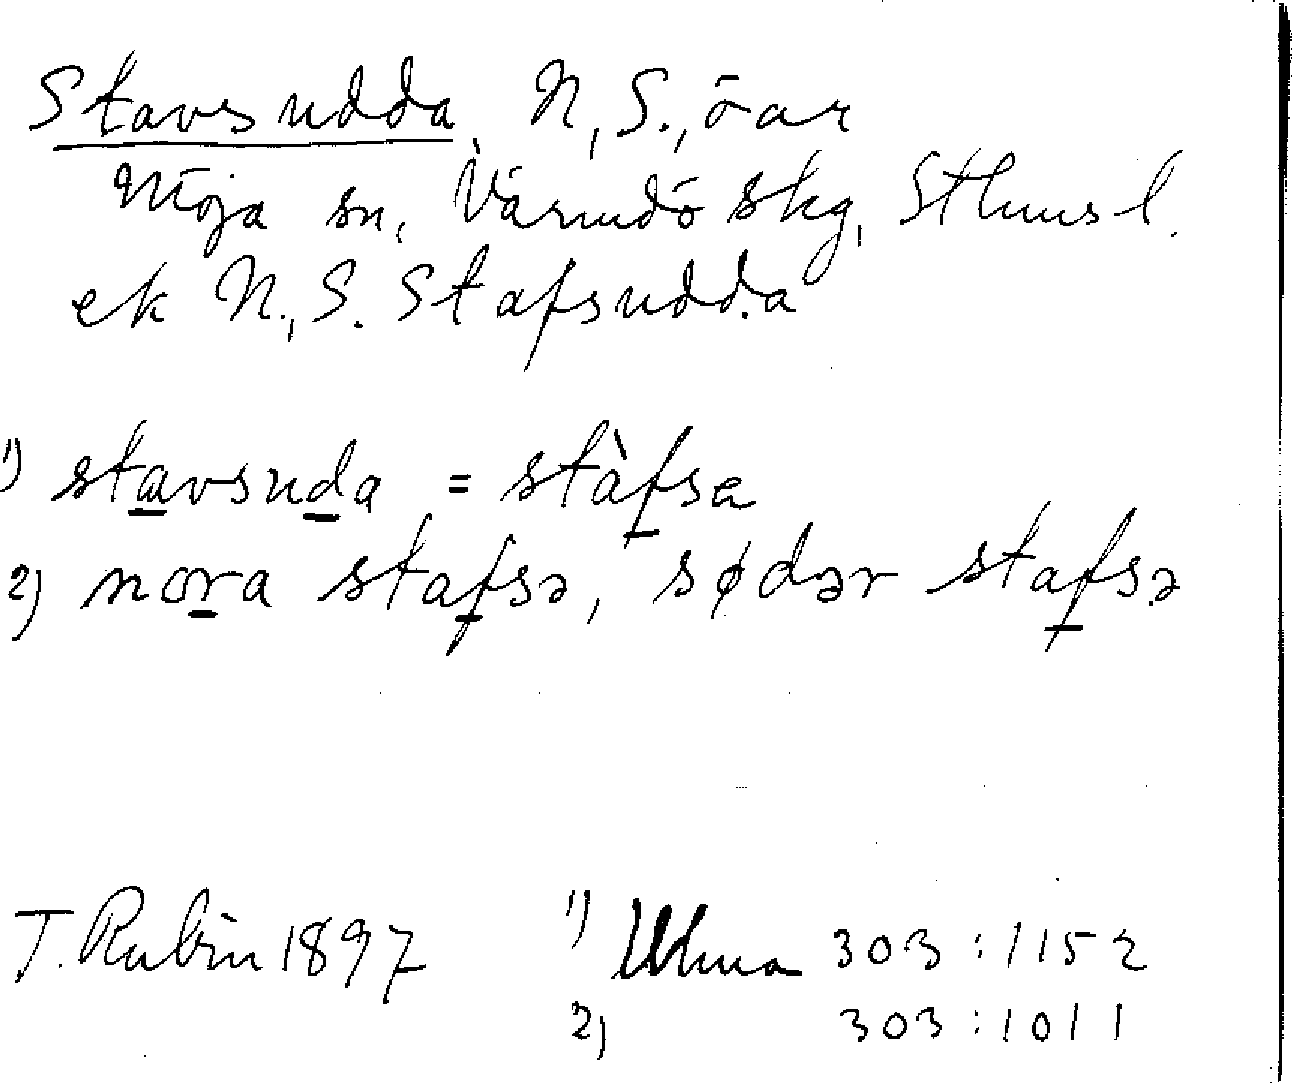 Stavsudda, N., S., öar
Möja sn, Värmdö skg, Sthms l.
ek N., S. Stafsudda
1) stavsuda = stàfsa
2) nora stafsə, sødər stafsə
T. Rubin 1897 1) Ulma 303:1152
2) 303:1011